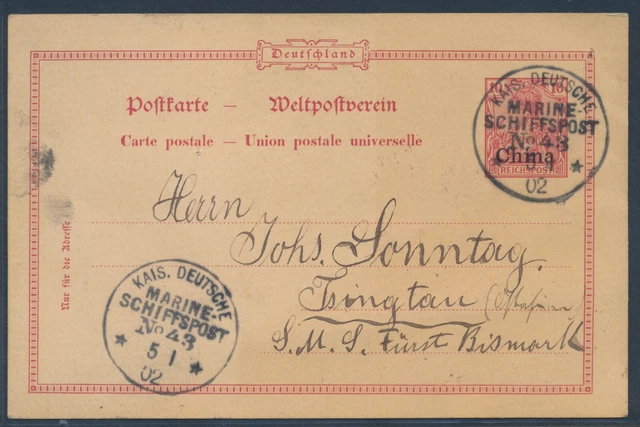 Deutschland
Postkarte — Weltpostverein
Carte postale — Union postale universelle
10
China
REICHSPOST
KAIS. DEUTSCHE
MARINE-
SCHIFFSPOST
No 43
5 1
02
Nur für die Adresse
Herrn
Johs. Sonntag.
Tsingtau (Ostasien
S. M. S. Fürst Bismark
KAIS. DEUTSCHE
MARINE-
SCHIFFSPOST
No 43
5 1
02